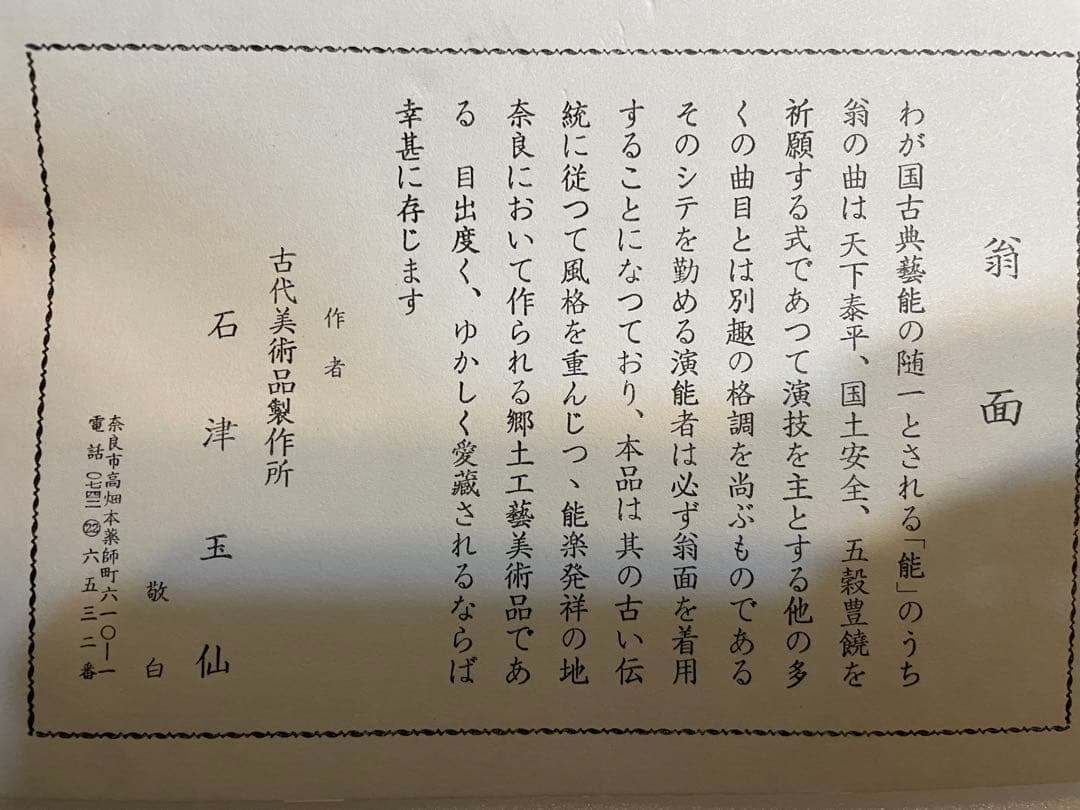 翁面
わが国古典藝能の随一とされる「能」のうち
翁の曲は天下泰平、国土安全、五穀豊饒を
祈願する式であつて演技を主とする他の多
くの曲目とは別趣の格調を尚ぶものである
そのシテを勤める演能者は必ず翁面を着用
することになつており、本品は其の古い伝
統に従つて風格を重んじつゝ能楽発祥の地
奈良において作られる郷土工藝美術品であ
る 目出度く、ゆかしく愛蔵されるならば
幸甚に存じます
作者
古代美術品製作所
石津玉仙
敬白
奈良市高畑本薬師町六一〇ー一
電話〇七四二㉒六五三二番